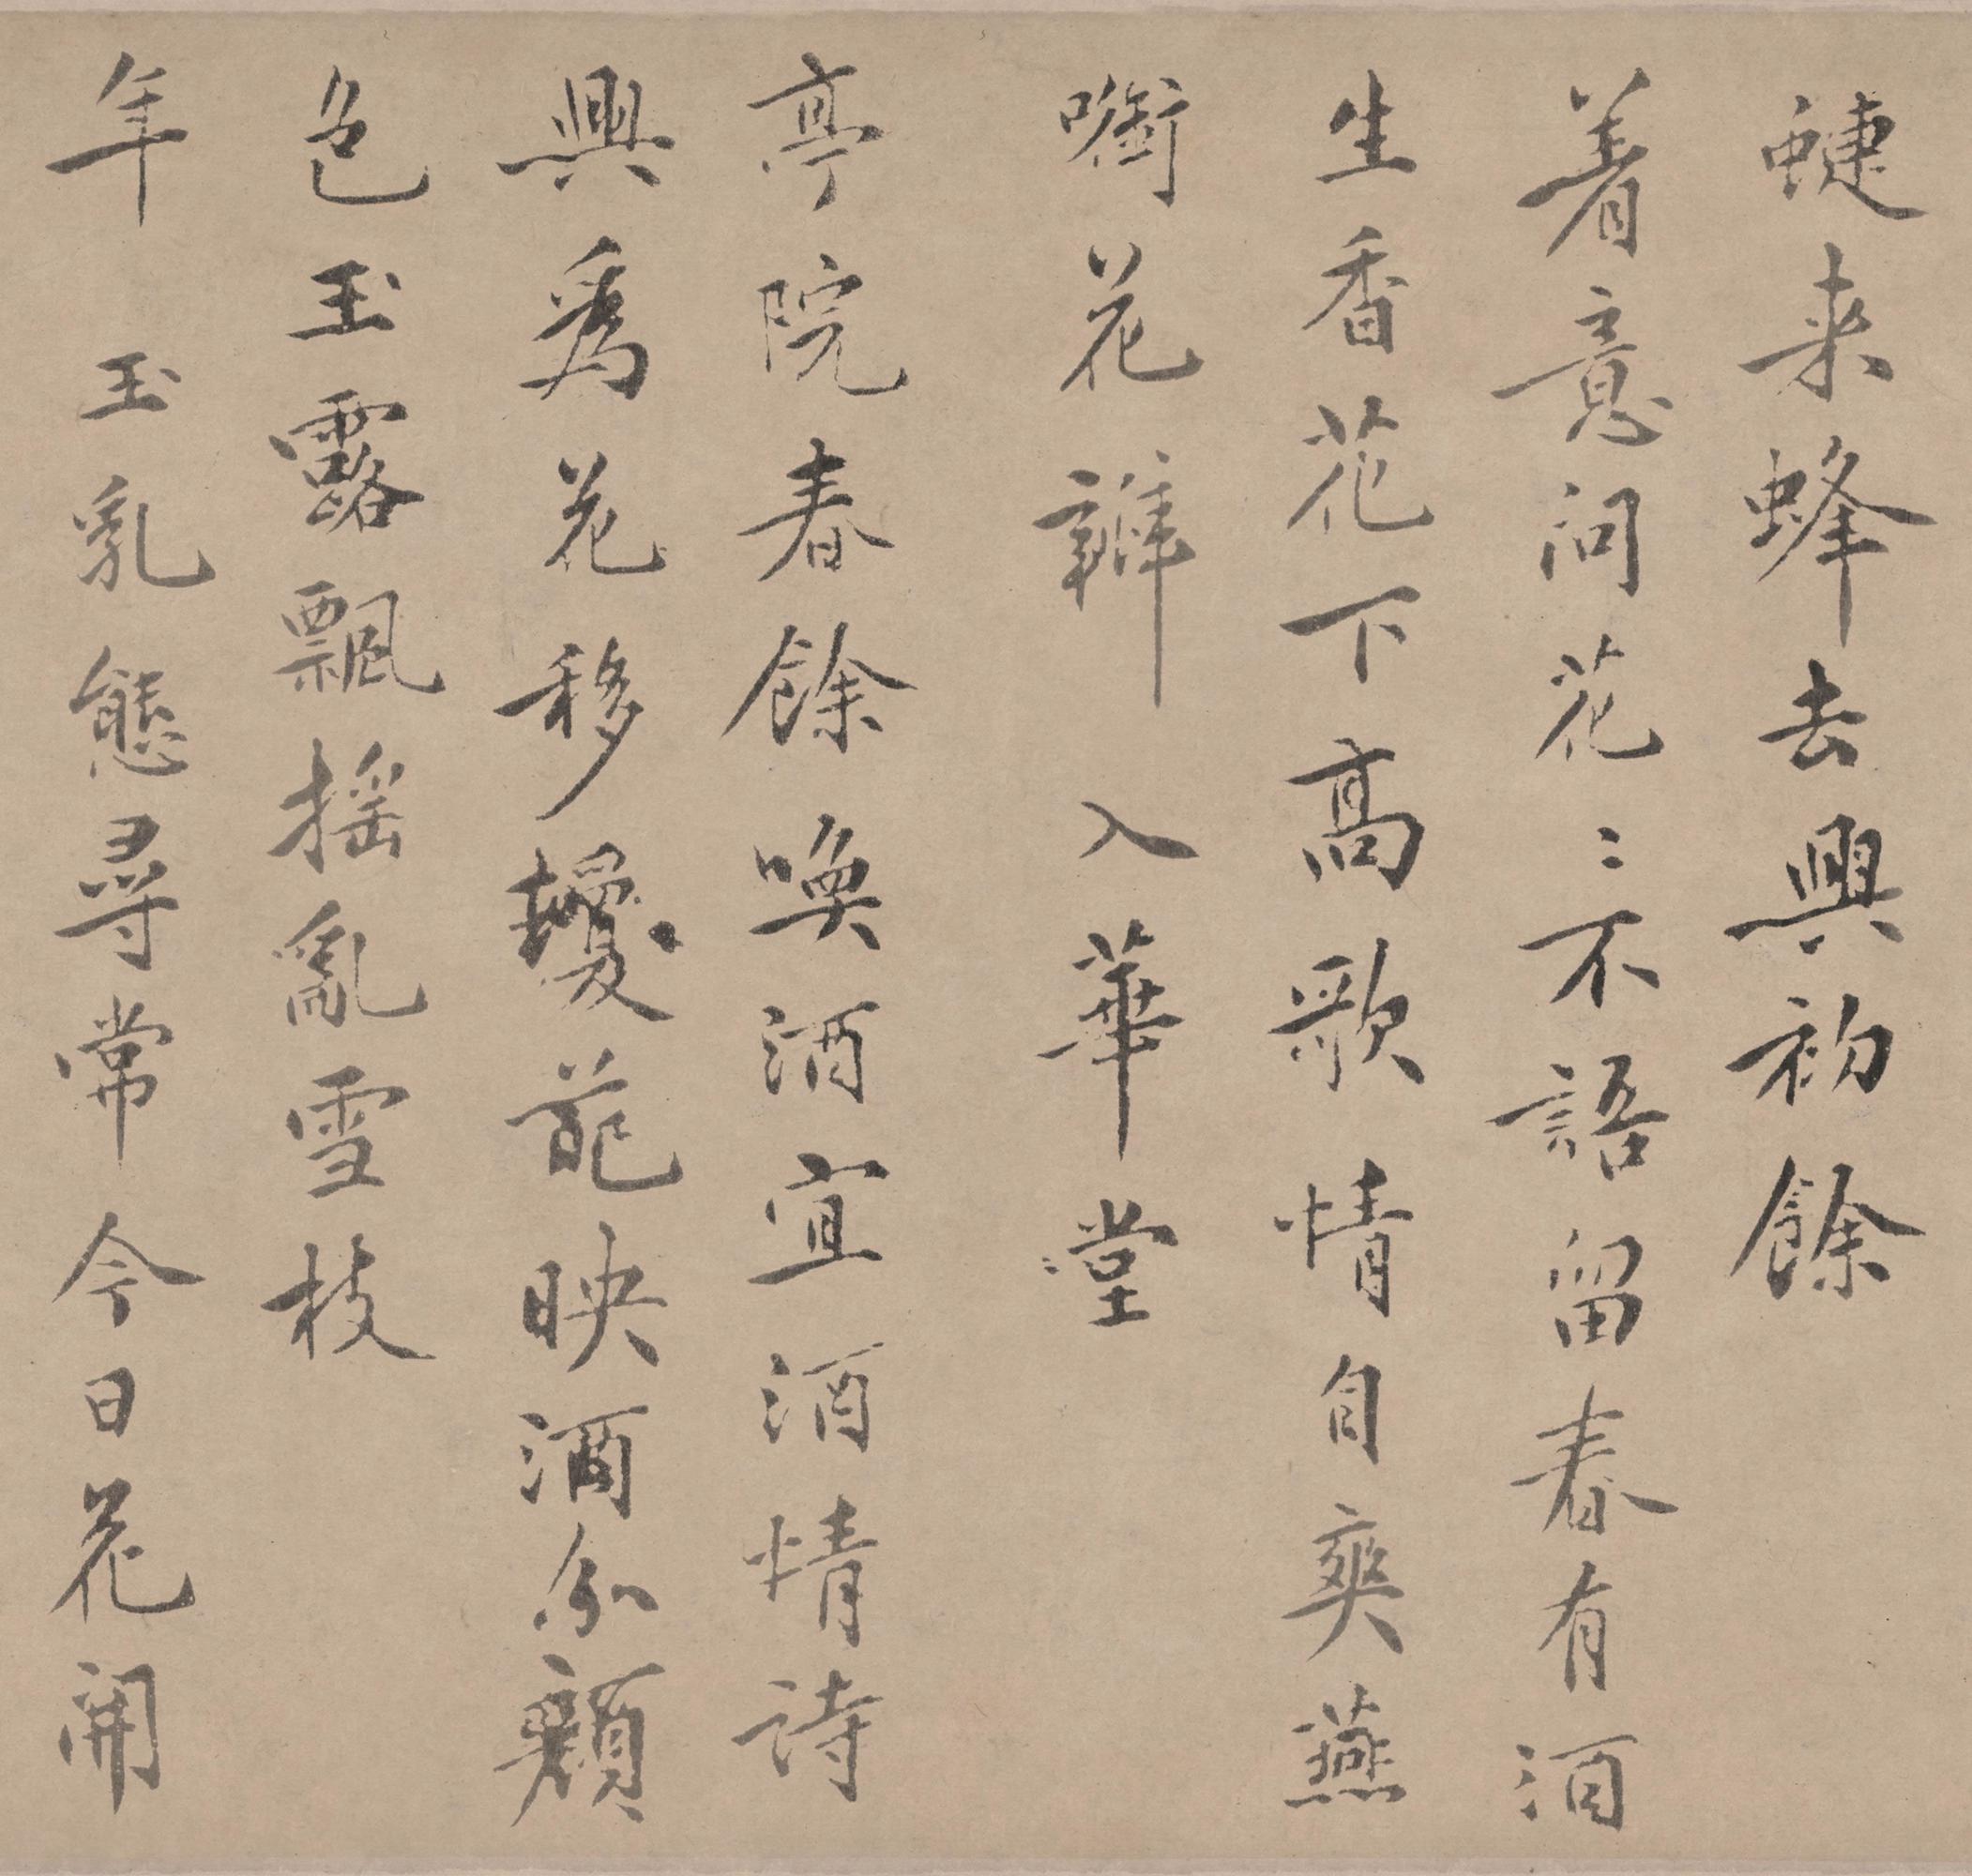 蜨来蜂去興初餘
着意问花〻不語留春有酒
生香花下高歌情自爽燕
嘲花辧入華堂
亭院春餘喚酒宜酒情詩
興爲花移擾花映酒分顏
色玉露飄揺亂雪枝
年玉乳態尋常今日花開